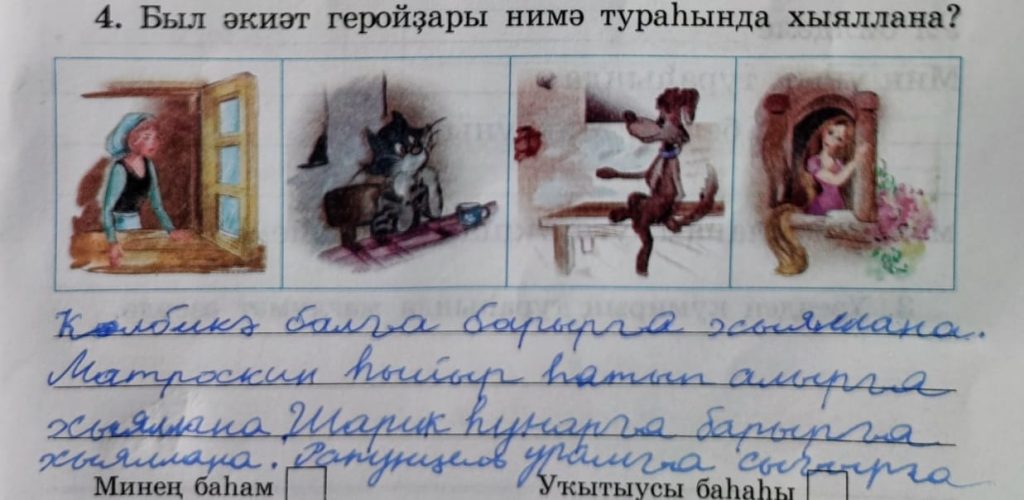 4. Был әкиәт геройҙары нимә тураһында хыяллана?
Көлбикә балға барырға хыяллана.
Матроскин һыйыр һатып алырға
хыяллана. Шарик һунарға барырға
хыяллана. Рапунцель урамға сығырға
Минең баһам
Уҡытыусы баһаһы